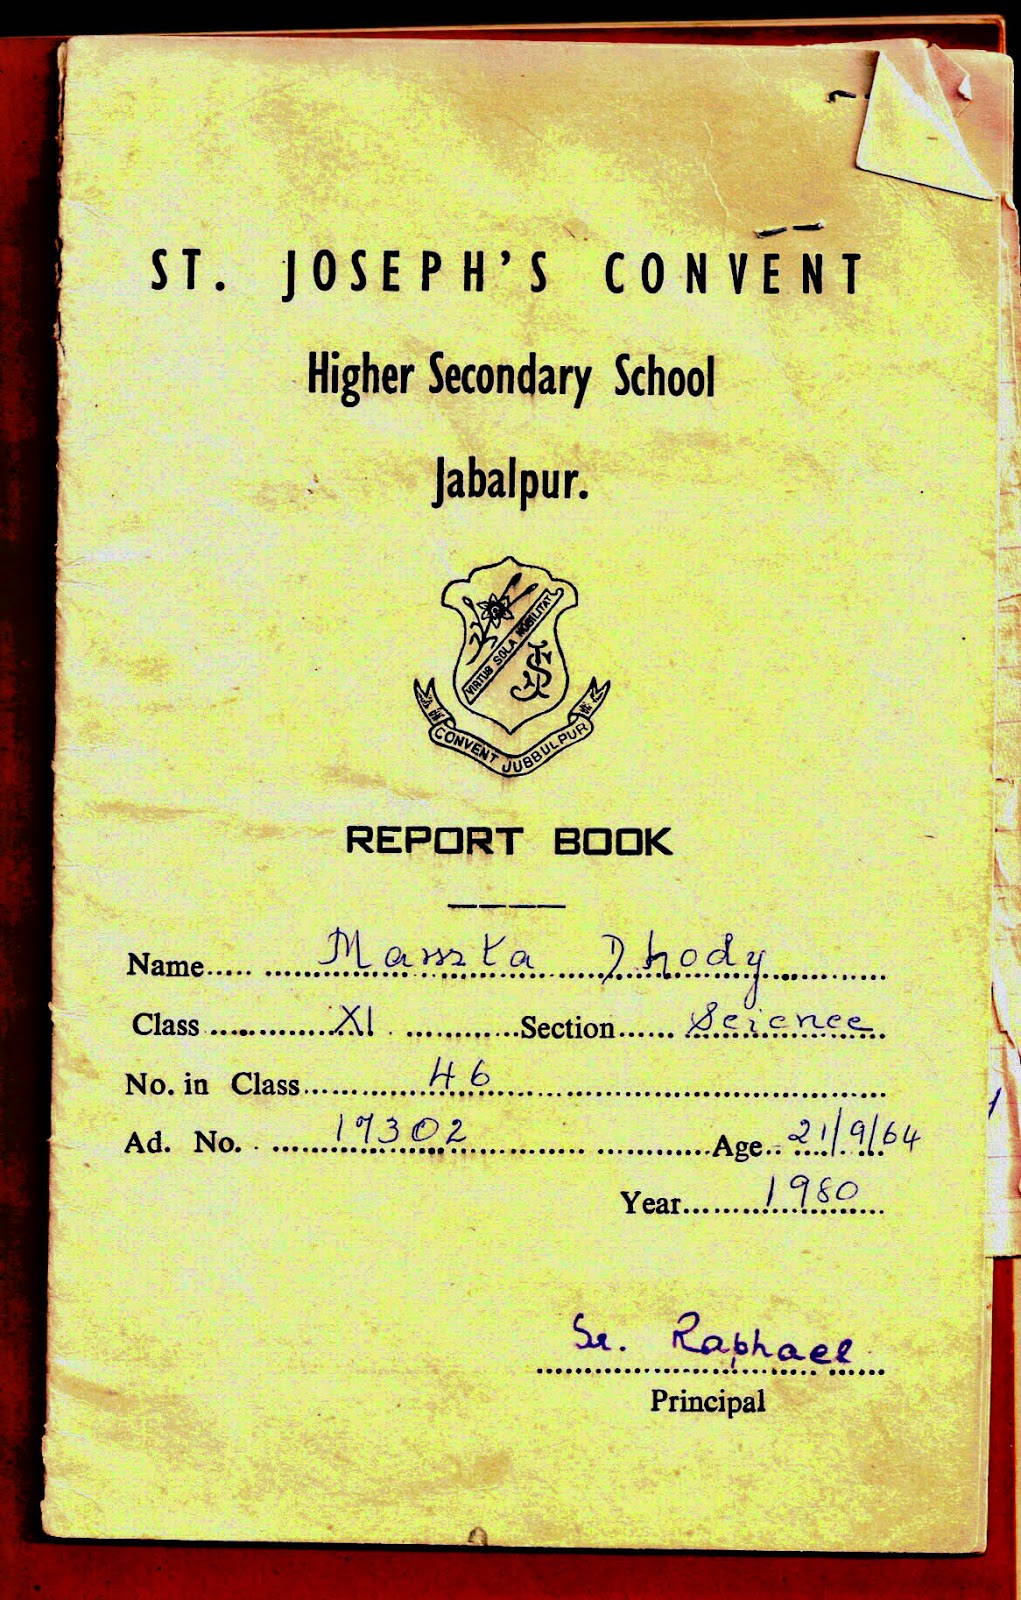 ST. JOSEPH'S CONVENT
Higher Secondary School
Jabalpur.
VIRTUS SOLA NOBILITAT
SJ
CONVENT JUBBULPUR
REPORT BOOK
Name..... Dhody
Class XI Section Science
No. in Class 46
Ad. No. 17302 Age 21/9/64
Year 1980
Sr. Raphael
Principal